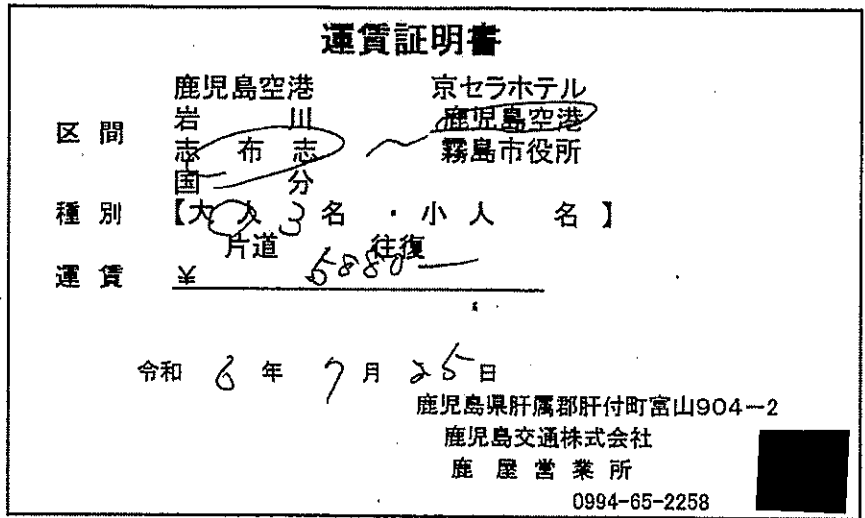 運賃証明書
鹿児島空港 京セラホテル
区間 岩川 鹿児島空港
志布志 ～ 霧島市役所
国分
種別 【大人 3 名 ・ 小人 名 】
片道 往復
運賃 ¥ 5880―
令和 6 年 7 月 25 日
鹿児島県肝属郡肝付町富山904－2
鹿児島交通株式会社
鹿屋営業所
0994-65-2258